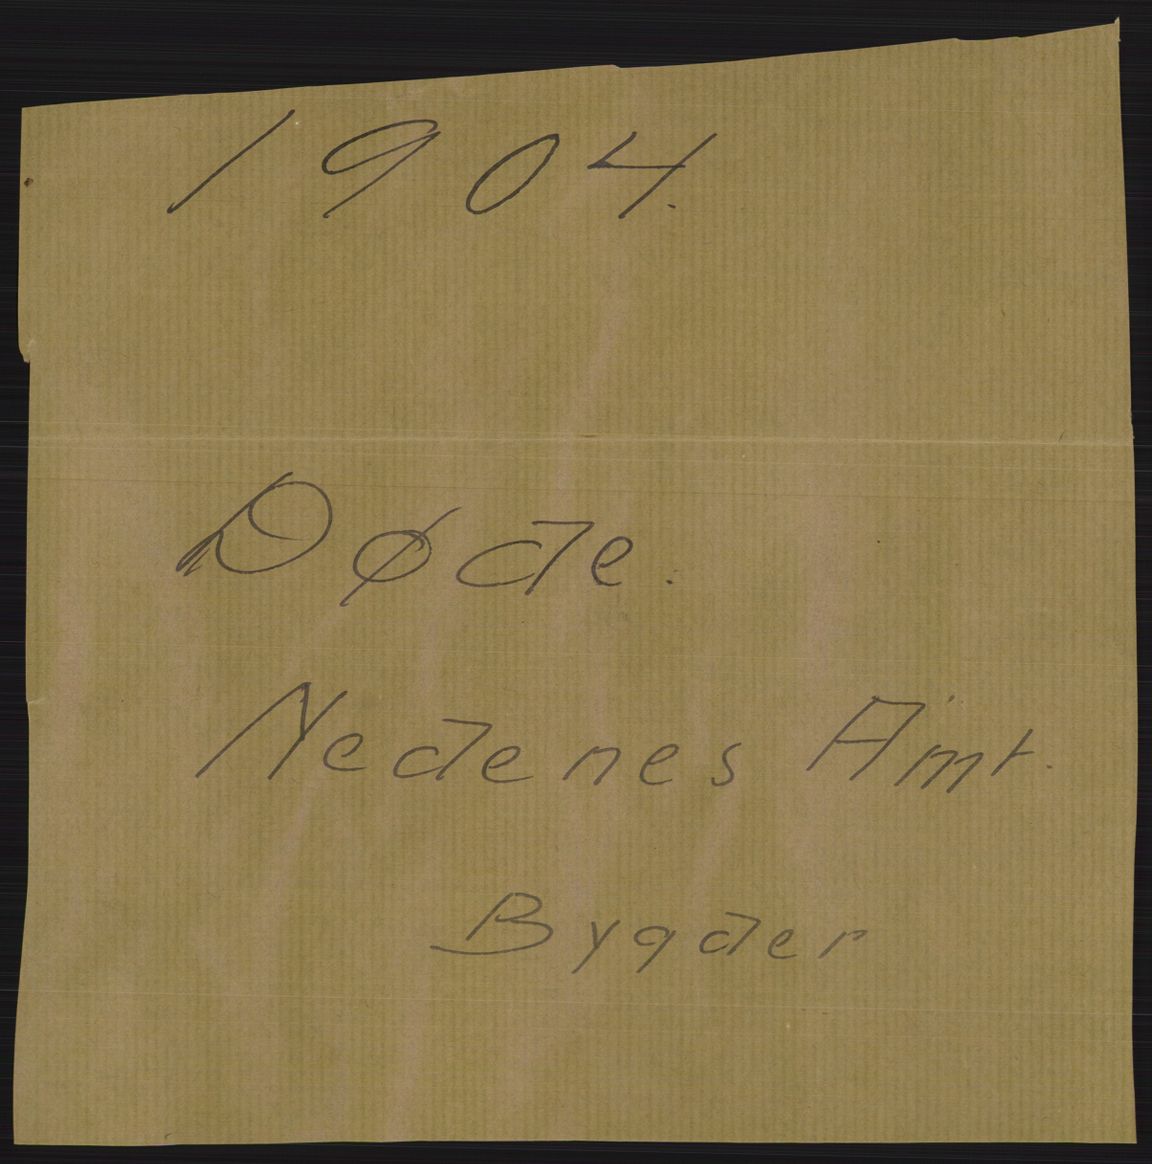 1904.
Døde.
Nedenes Amt.
Bygder